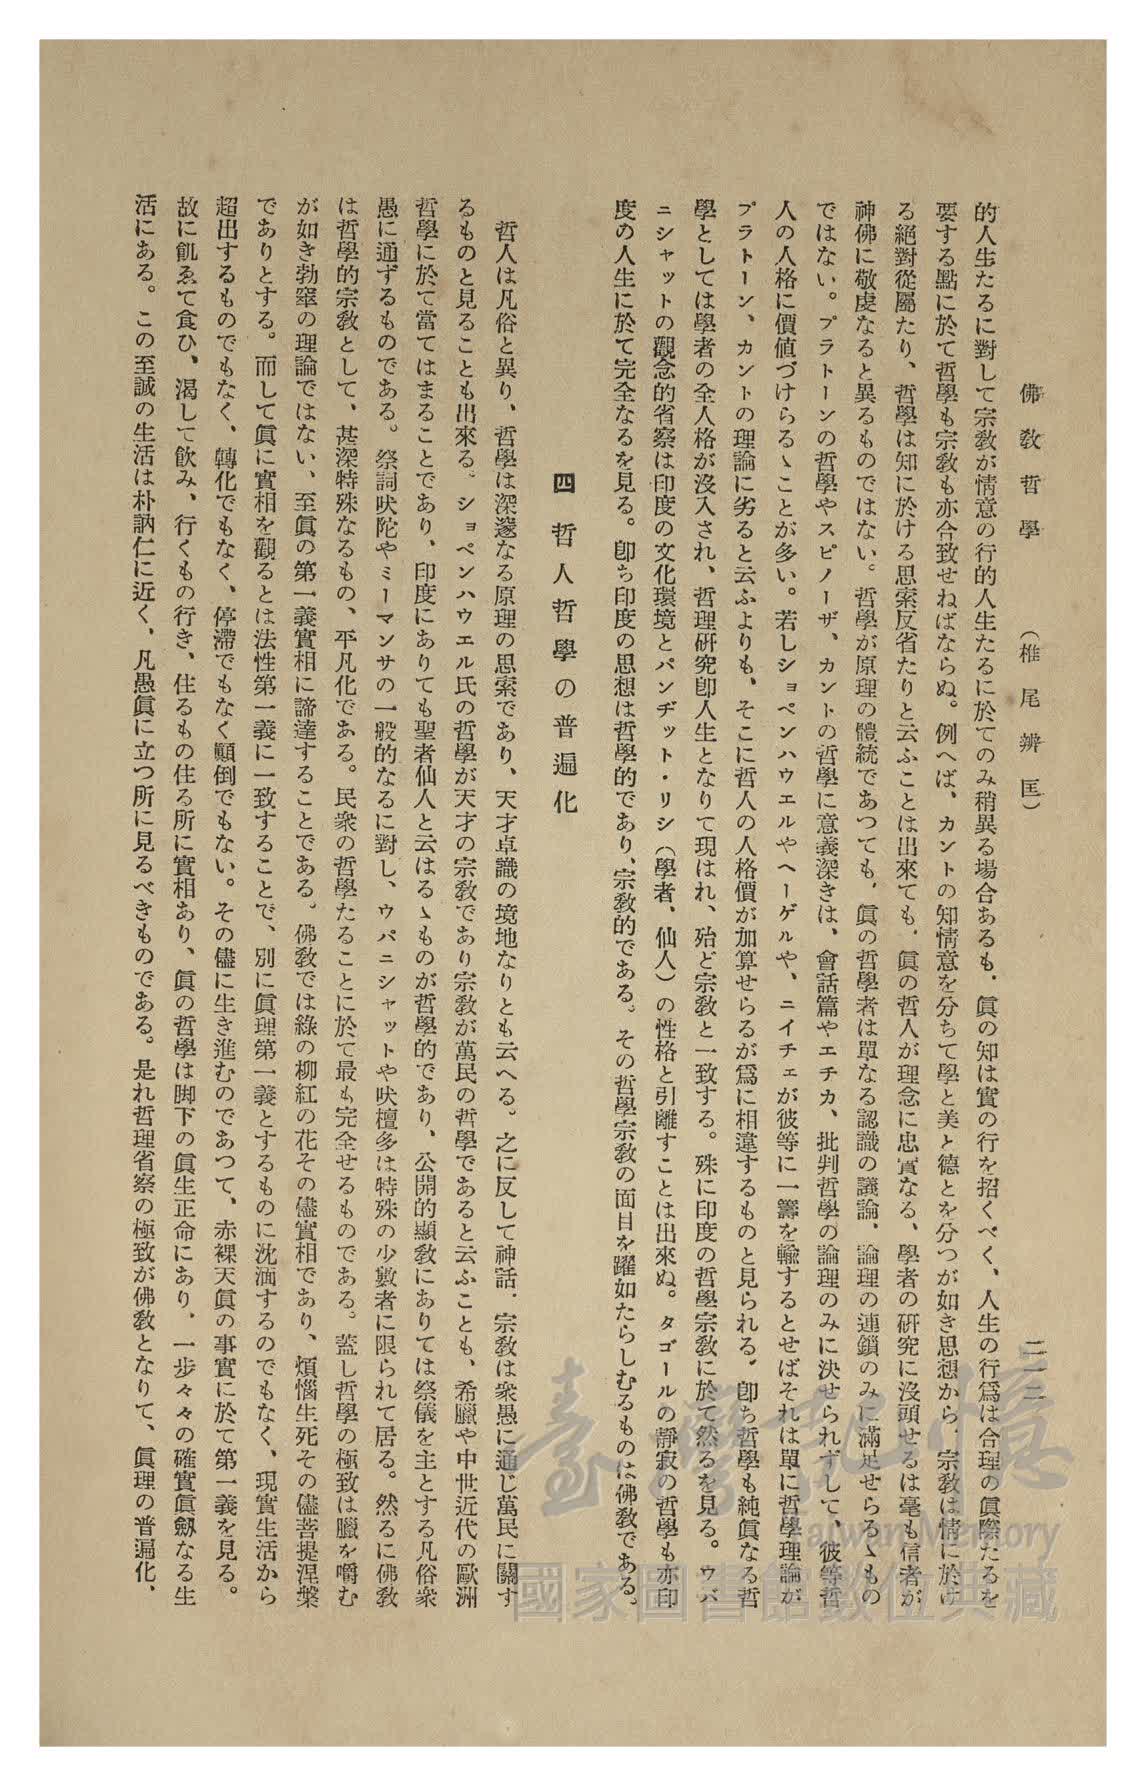 佛教哲學　（椎尾辨匡）　二一二
的人生たるに對して宗教が情意の行的人生たるに於てのみ稍異る場合あるも、眞の知は實の行を招くべく、人生の行爲は合理の眞際たるを
要する點に於て哲學も宗教も亦合致せねばならぬ。例へば、カントの知情意を分ちて學と美と德とを分つが如き思想から、宗教は情に於け
る絕對從屬たり、哲學は知に於ける思索反省たりと云ふことは出來ても、眞の哲人が理念に忠實なる、學者の硏究に沒頭せるは毫も信者が
神佛に敬虔なると異るものではない。哲學が原理の體統であつても、眞の哲學者は單なる認識の議論、論理の連鎖のみに滿足せらるゝもの
ではない。プラトーンの哲學やスピノーザ、カントの哲學に意義深きは、會話篇やエチカ、批判哲學の論理のみに決せられずして、彼等哲
人の人格に價値づけらるゝことが多い。若しショペンハウエルやヘーゲルや、ニイチェが彼等に一籌を輸するとせばそれは單に哲學理論が
プラトーン、カントの理論に劣ると云ふよりも、そこに哲人の人格價が加算せらるが爲に相違するものと見られる。卽ち哲學も純眞なる哲
學としては學者の全人格が沒入され、哲理硏究卽人生となりて現はれ、殆ど宗教と一致する。殊に印度の哲學宗教に於て然るを見る。ウパ
ニシャットの觀念的省察は印度の文化環境とパンヂット・リシ（學者、仙人）の性格と引離すことは出來ぬ。タゴールの靜寂の哲學も亦印
度の人生に於て完全なるを見る。卽ち印度の思想は哲學的であり、宗教的である。その哲學宗教の面目を躍如たらしむるものは佛教である。
四　哲人哲學の普遍化
哲人は凡俗と異り、哲學は深邃なる原理の思索であり、天才卓識の境地なりとも云へる。之に反して神話、宗教は衆愚に通じ萬民に關す
るものと見ることも出來る。ショペンハウエル氏の哲學が天才の宗教であり宗教が萬民の哲學であると云ふことも、希臘や中世近代の歐洲
哲學に於て當てはまることであり、印度にありても聖者仙人と云はるゝものが哲學的であり、公開的顯教にありては祭儀を主とする凡俗衆
愚に通ずるものである。祭詞吠陀やミーマンサの一般的なるに對し、ウパニシャットや吠檀多は特殊の少數者に限られて居る。然るに佛教
は哲學的宗教として、甚深特殊なるもの、平凡化である。民衆の哲學たることに於て最も完全せるものである。蓋し哲學の極致は臘を嚼む
が如き勃窣の理論ではない、至眞の第一義實相に諦達することである。佛教では綠の柳紅の花その儘實相であり、煩惱生死その儘菩提涅槃
でありとする。而して眞に實相を觀るとは法性第一義に一致することで、別に眞理第一義とするものに沈湎するのでもなく、現實生活から
超出するものでもなく、轉化でもなく、停滯でもなく顚倒でもない。その儘に生き進むのであつて、赤裸天眞の事實に於て第一義を見る。
故に飢ゑて食ひ、渴して飮み、行くもの行き、住るもの住る所に實相あり、眞の哲學は脚下の眞生正命にあり、一步々々の確實眞劒なる生
活にある。この至誠の生活は朴訥仁に近く、凡愚眞に立つ所に見るべきものである。是れ哲理省察の極致が佛教となりて、眞理の普遍化、
臺灣記憶
Taiwan Memory
國家圖書館數位典藏